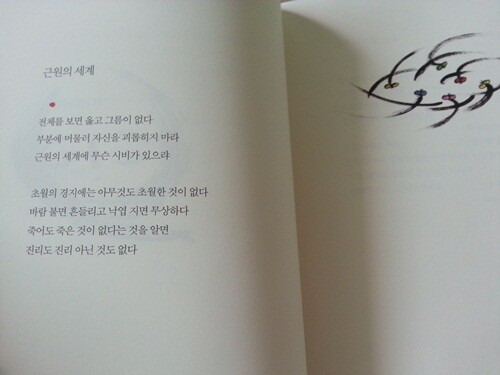 근원의 세계
전체를 보면 옳고 그름이 없다
부분에 머물러 자신을 괴롭히지 마라
근원의 세계에 무슨 시비가 있으랴
초월의 경지에는 아무것도 초월한 것이 없다
바람 불면 흔들리고 낙엽 지면 무상하다
죽어도 죽은 것이 없다는 것을 알면
진리도 진리 아닌 것도 없다